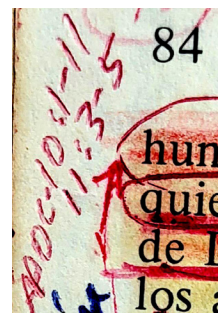 84
APOC-10:1-11
11:3-5
hum
quie
de
los